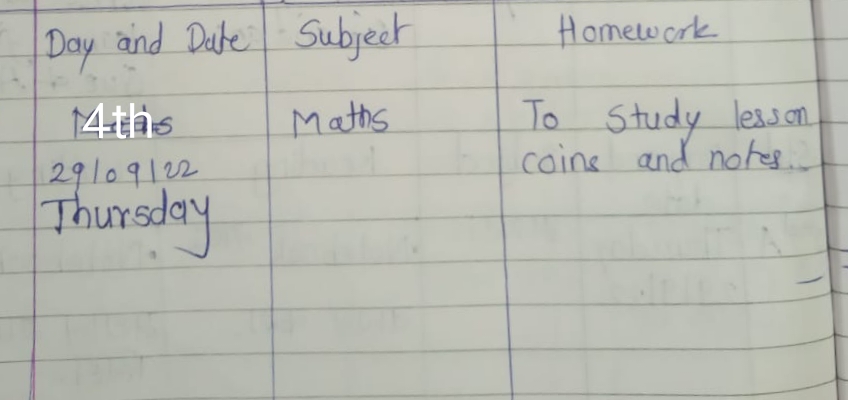 Day and Date Subject Homework
4th Maths To study lesson
29/09/22 coins and notes.
Thursday